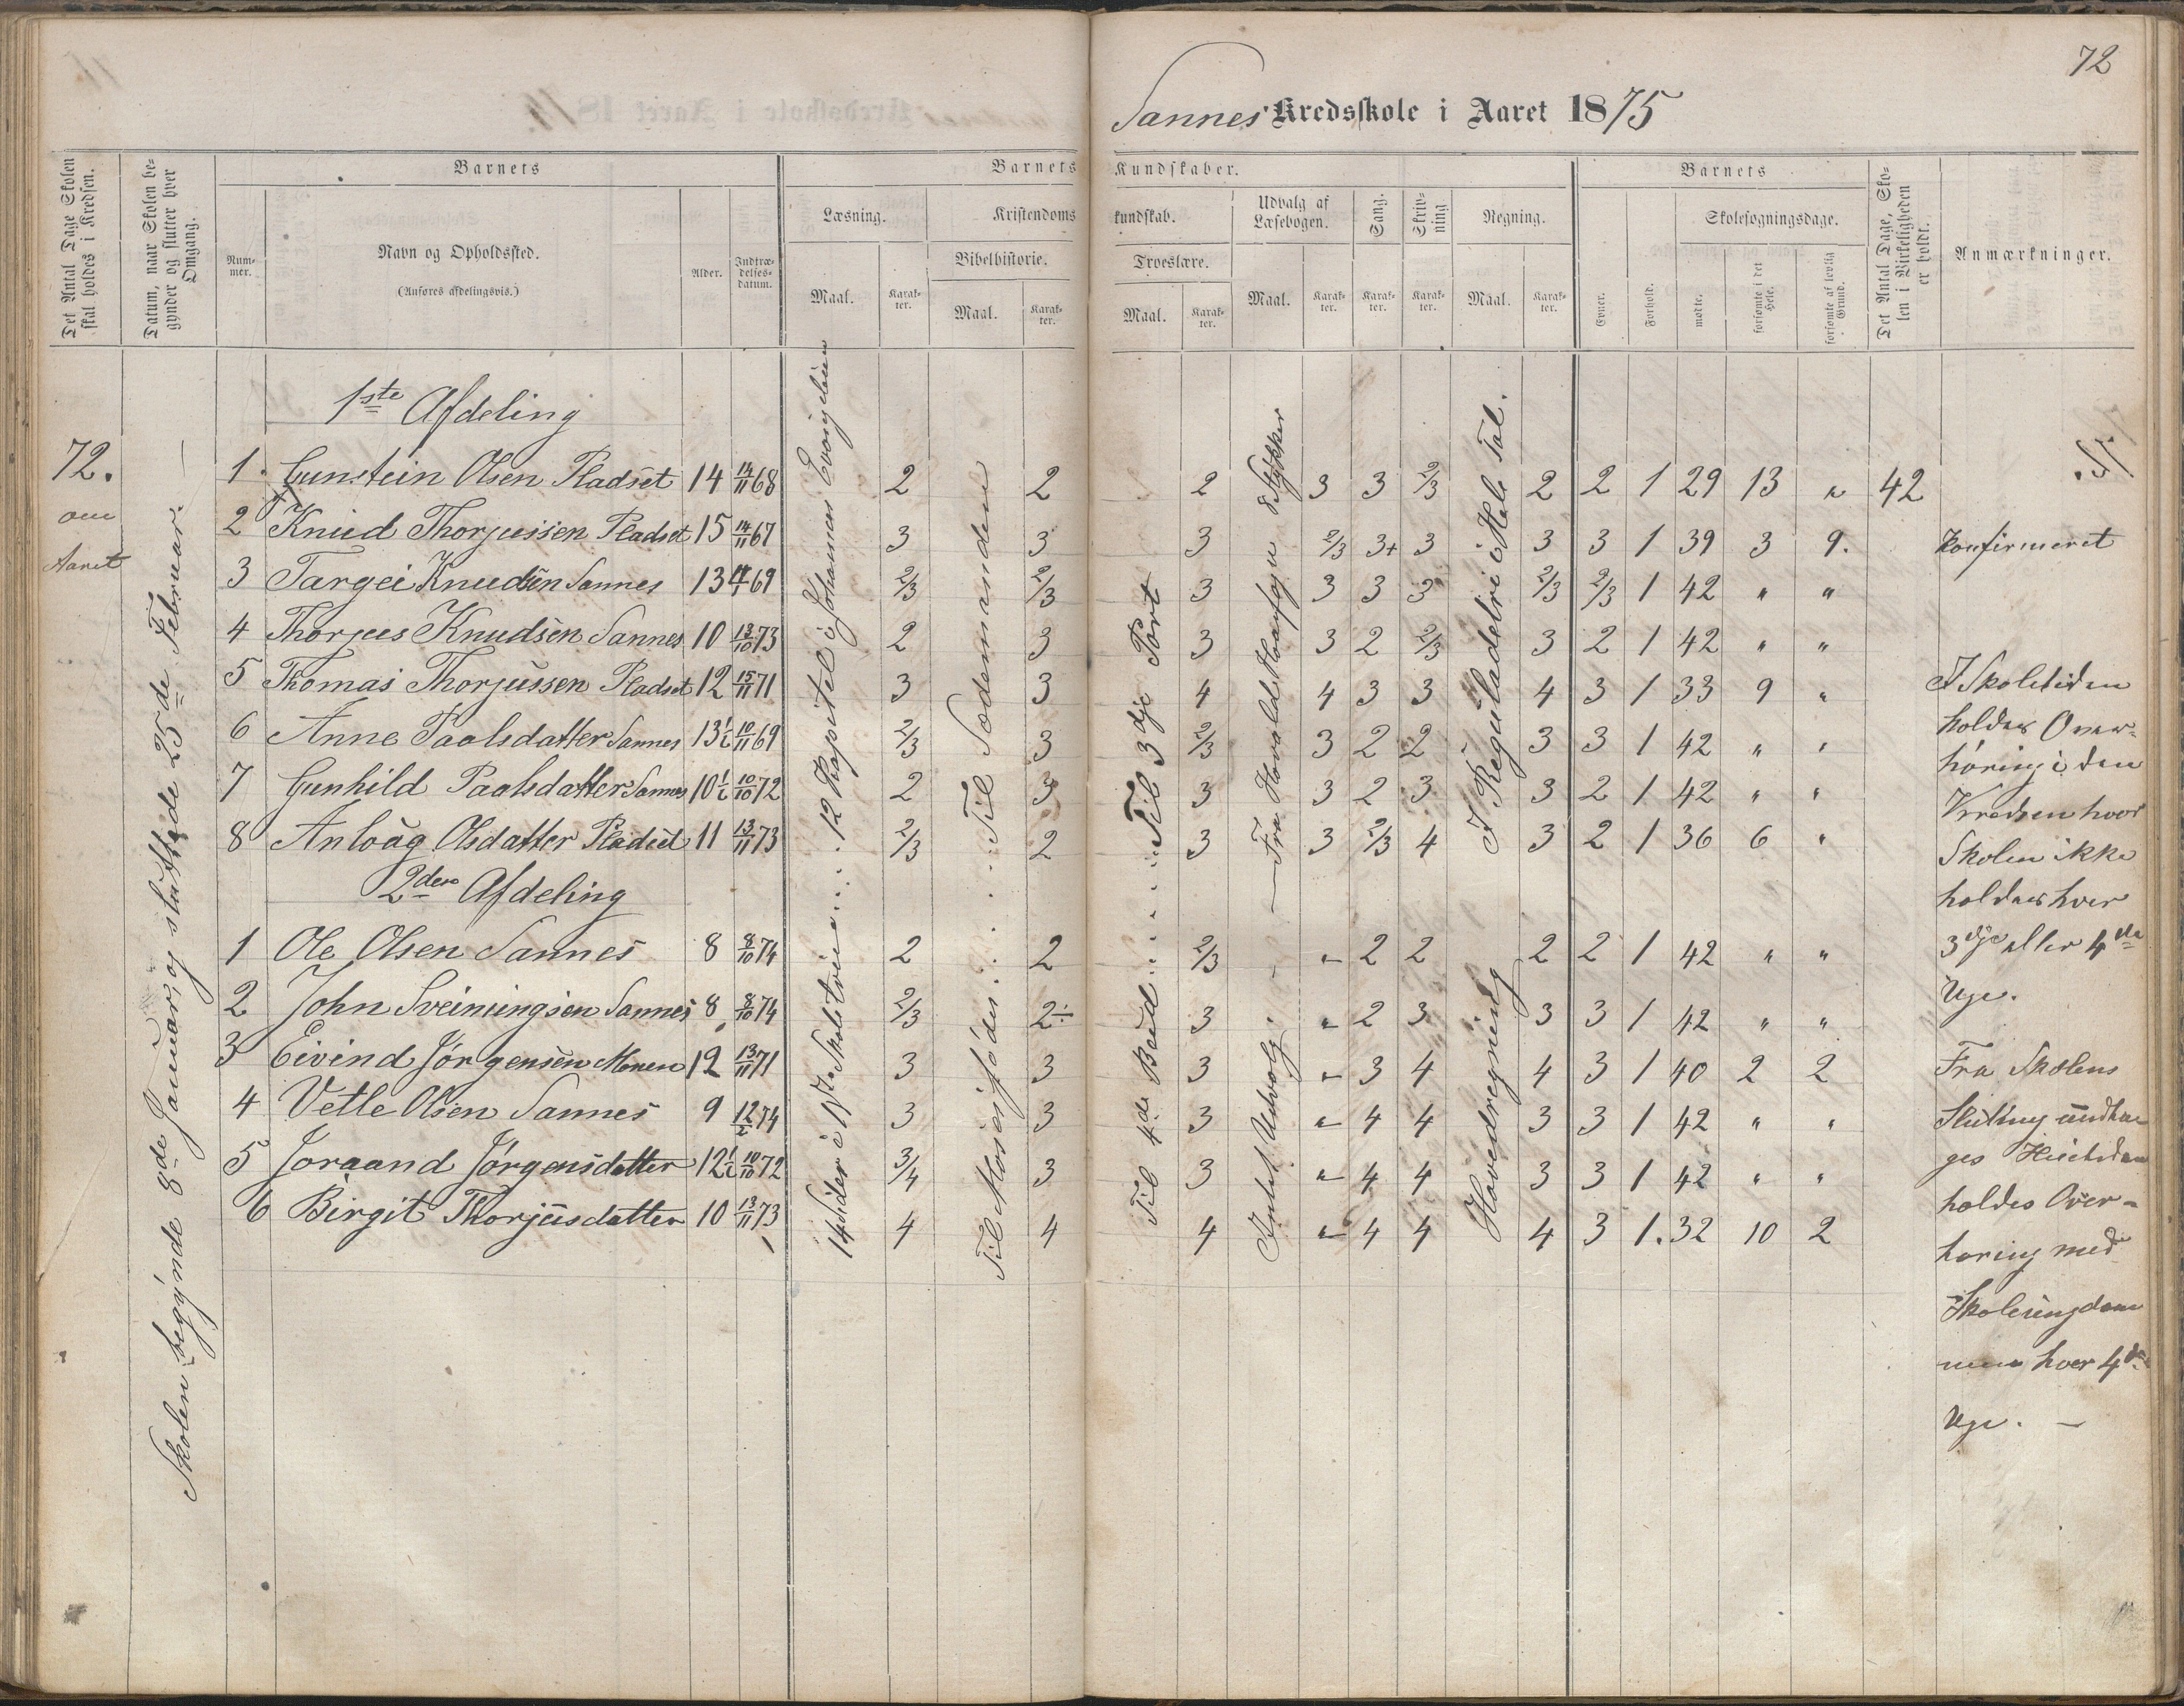 72
Sannes Kredsskole i Aaret 1875
Det Antal Dage Skolen skal holdes i Kredsen.
Datum, naar Skolen begynder og slutter hver Omgang.
Barnets
Nummer.
Navn og Opholdssted.
(Anføres afdelingsvis.)
Alder.
Indtrædelsesdatum.
Barnets Kundskaber.
Læsning.
Maal.
Karakter.
Kristendomskundskab.
Bibelhistorie.
Maal.
Karakter.
Troeslære.
Maal.
Karakter.
Udvalg af Læsebogen.
Maal.
Karakter.
Sang.
Karakter.
Skrivning
Karakter.
Regning.
Maal.
Karakter.
Barnets
Evner.
Forhold.
Skolesøgningsdage.
mødte.
forsømte i det Hele.
forsømte af lovlig Grund.
Det Antal Dage, Skolen i Virkeligheden er holdt.
Anmærkninger.
72.
om
Aaret
Skolen begynde 8de Januar, og sluttede 25de Februar. —
1ste Afdeling
1. Gunstein Olsen Pladset 14 14/11 68 2 2 2 3 3 2/3 2 2 1 29 13 " 42
2 Knud Thorjussen Pladset 15 14/11 67 3 3 3 2/3 3+ 3 3 3 1 39 3 9. Konfirmeret
3 Targei Knudsen Sannes 13 69 2/3 2/3 3 3 3 3 2/3 2/3 1 42 " "
4 Thorjus Knudsen Sannes 10 13/10 73 2 3 3 3 2 2/3 3 2 1 42 " "
5 Thomas Thorjussen Pladset 12 15/11 71 3 3 4 4 3 3 4 3 1 33 9 "
6 Anne Paalsdatter Sannes 13 1/2 10/11 69 2/3 3 2/3 3 2 2 3 3 1 42 " "
7 Gunhild Paalsdatter Sannes 10 1/2 10/10 72 2 3 3 3 2 3 3 2 1 42 " "
8 Anlaug Olsdatter Pladset 11 13/11 73 2/3 2 3 3 2/3 4 3 2 1 36 6 "
12 Kapitel i Johannes Evangelium
Til Sædemanden
Til 3dje Part
Fra Harald Haarfager 8 Stykker
I Reguladetri i Hele Tal.
2den Afdeling
1 Ole Olsen Sannes 8 8/10 74 2 2 2/3 " 2 2 2 2 1 42 " "
2 John Sveinungsen Sannes 8 8/10 74 2/3 2÷ 3 " 2 3 3 3 1 42 " "
3 Eivind Jørgensen Monen 12 13/11 71 3 3 3 " 3 4 4 3 1 40 2 2
4 Vetle Olsen Sannes 9 12/2 74 3 3 3 " 4 4 3 3 1 42 " "
5 Joraand Jørgensdatter 12 1/2 10/10 72 3/4 3 3 " 4 4 3 3 1 42 " "
6 Birgit Thorjusdatter 10 13/11 73 4 4 4 " 4 4 4 3 1. 32 10 2
14 Sider i
Til Moses fødes
Til 4de Bud
Hovedregning
I Skoletiden
holdes Over-
høring i den
Kredsen hvor
Skolen ikke
holdes hver
3dje eller 4de
Uge.
Fra Skolens
holdes Over-
høring med
Skoleungdom
men hver 4de
Uge. —